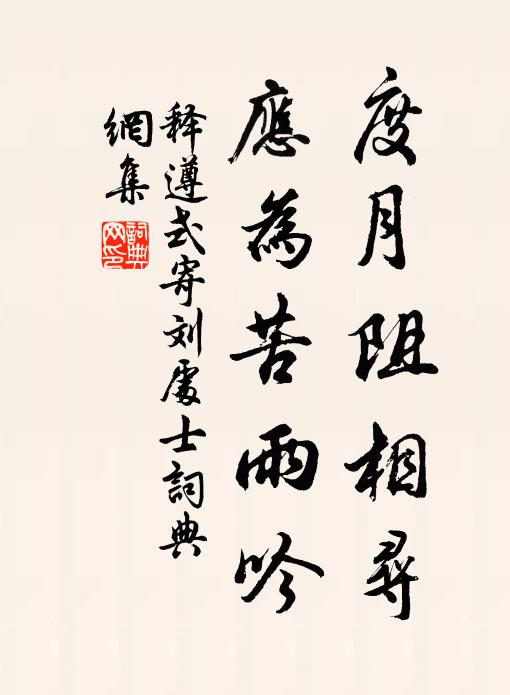 度月阻相尋
應為苦雨吟
释遵式寄刘處士詞典
網集
詞典
网印